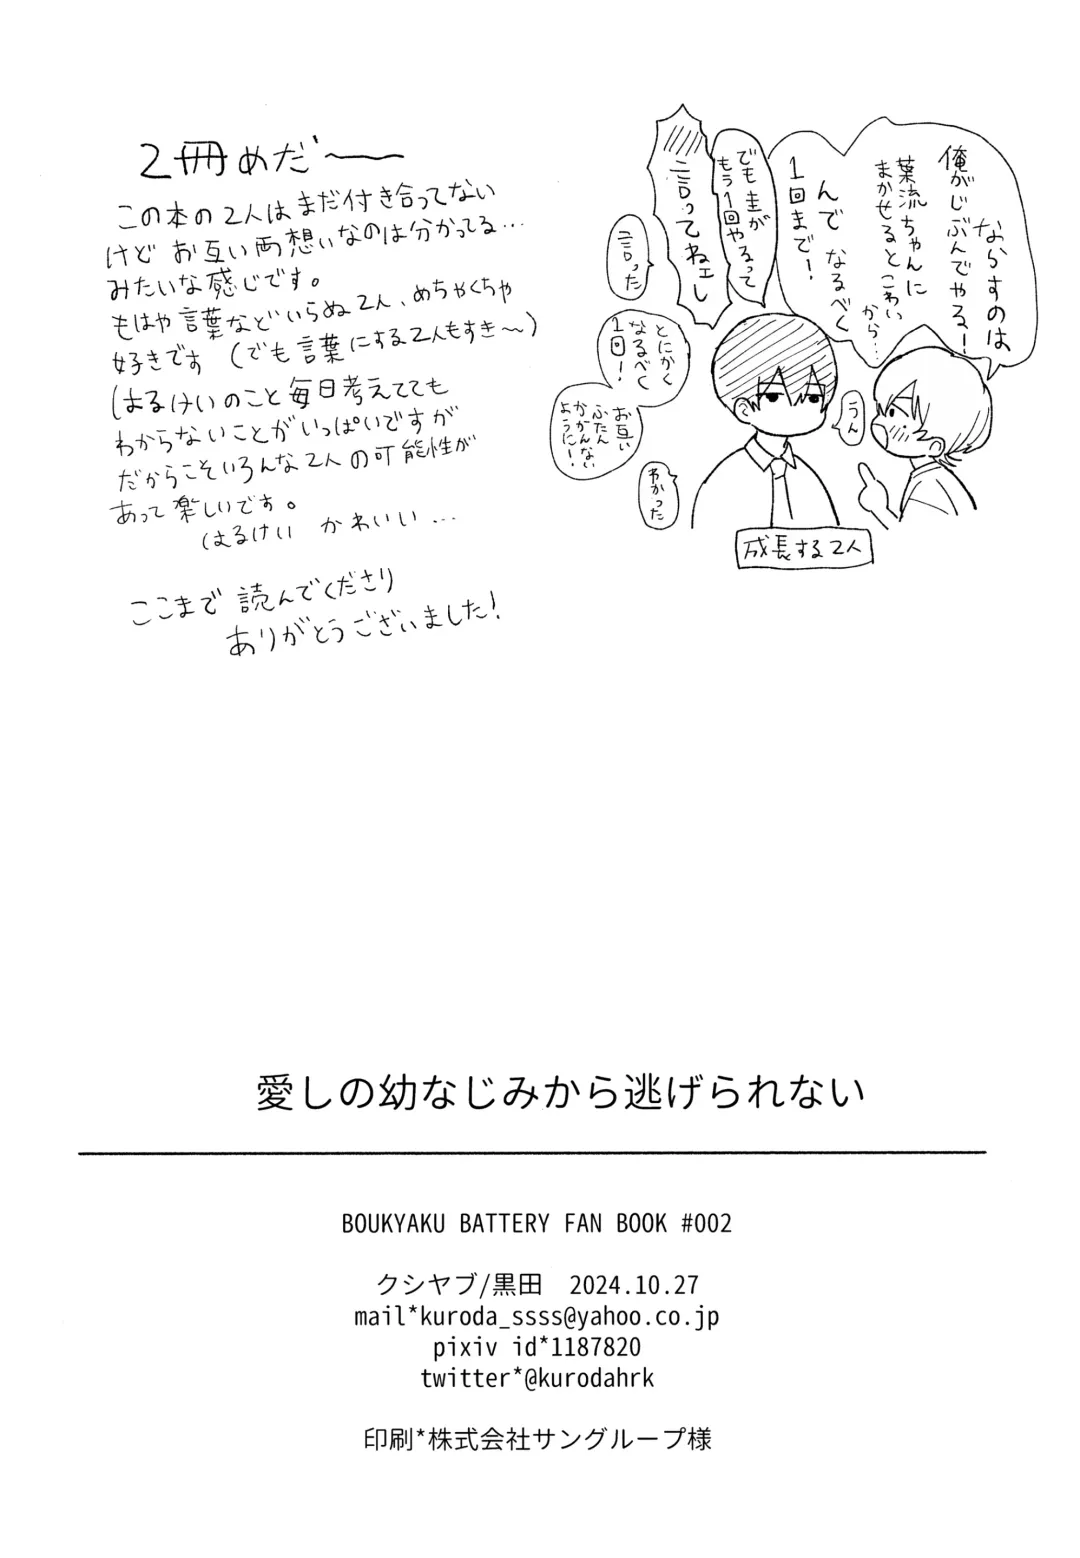 2冊めだ〜
この本の2人はまだ付き合ってない
けど お互い両想いなのは分かってる…
みたいな感じです。
もはや言葉などいらぬ2人、めちゃくちゃ
好きです (でも言葉にする2人もすき〜)
はるけいのこと毎日考えてても
わからないことがいっぱいですが
だからこそいろんな2人の可能性が
あって楽しいです。
はるけい かわいい…
ここまで読んでくださり
ありがとうございました!
ならすのは
俺がじぶんでやる!
葉流ちゃんに
まかせるとこわい
から…
んで なるべく
1回まで!
うん
でも圭が
もう1回やるって
言ってねェし
言った
とにかく
なるべく
1回!
お互い
ふたん
かかんない
ように!
わかった
成長する2人
愛しの幼なじみから逃げられない
BOUKYAKU BATTERY FAN BOOK #002
クシヤブ/黒田 2024.10.27
mail*kuroda_ssss@yahoo.co.jp
pixiv id*1187820
twitter*@kurodahrk
印刷*株式会社サングループ様